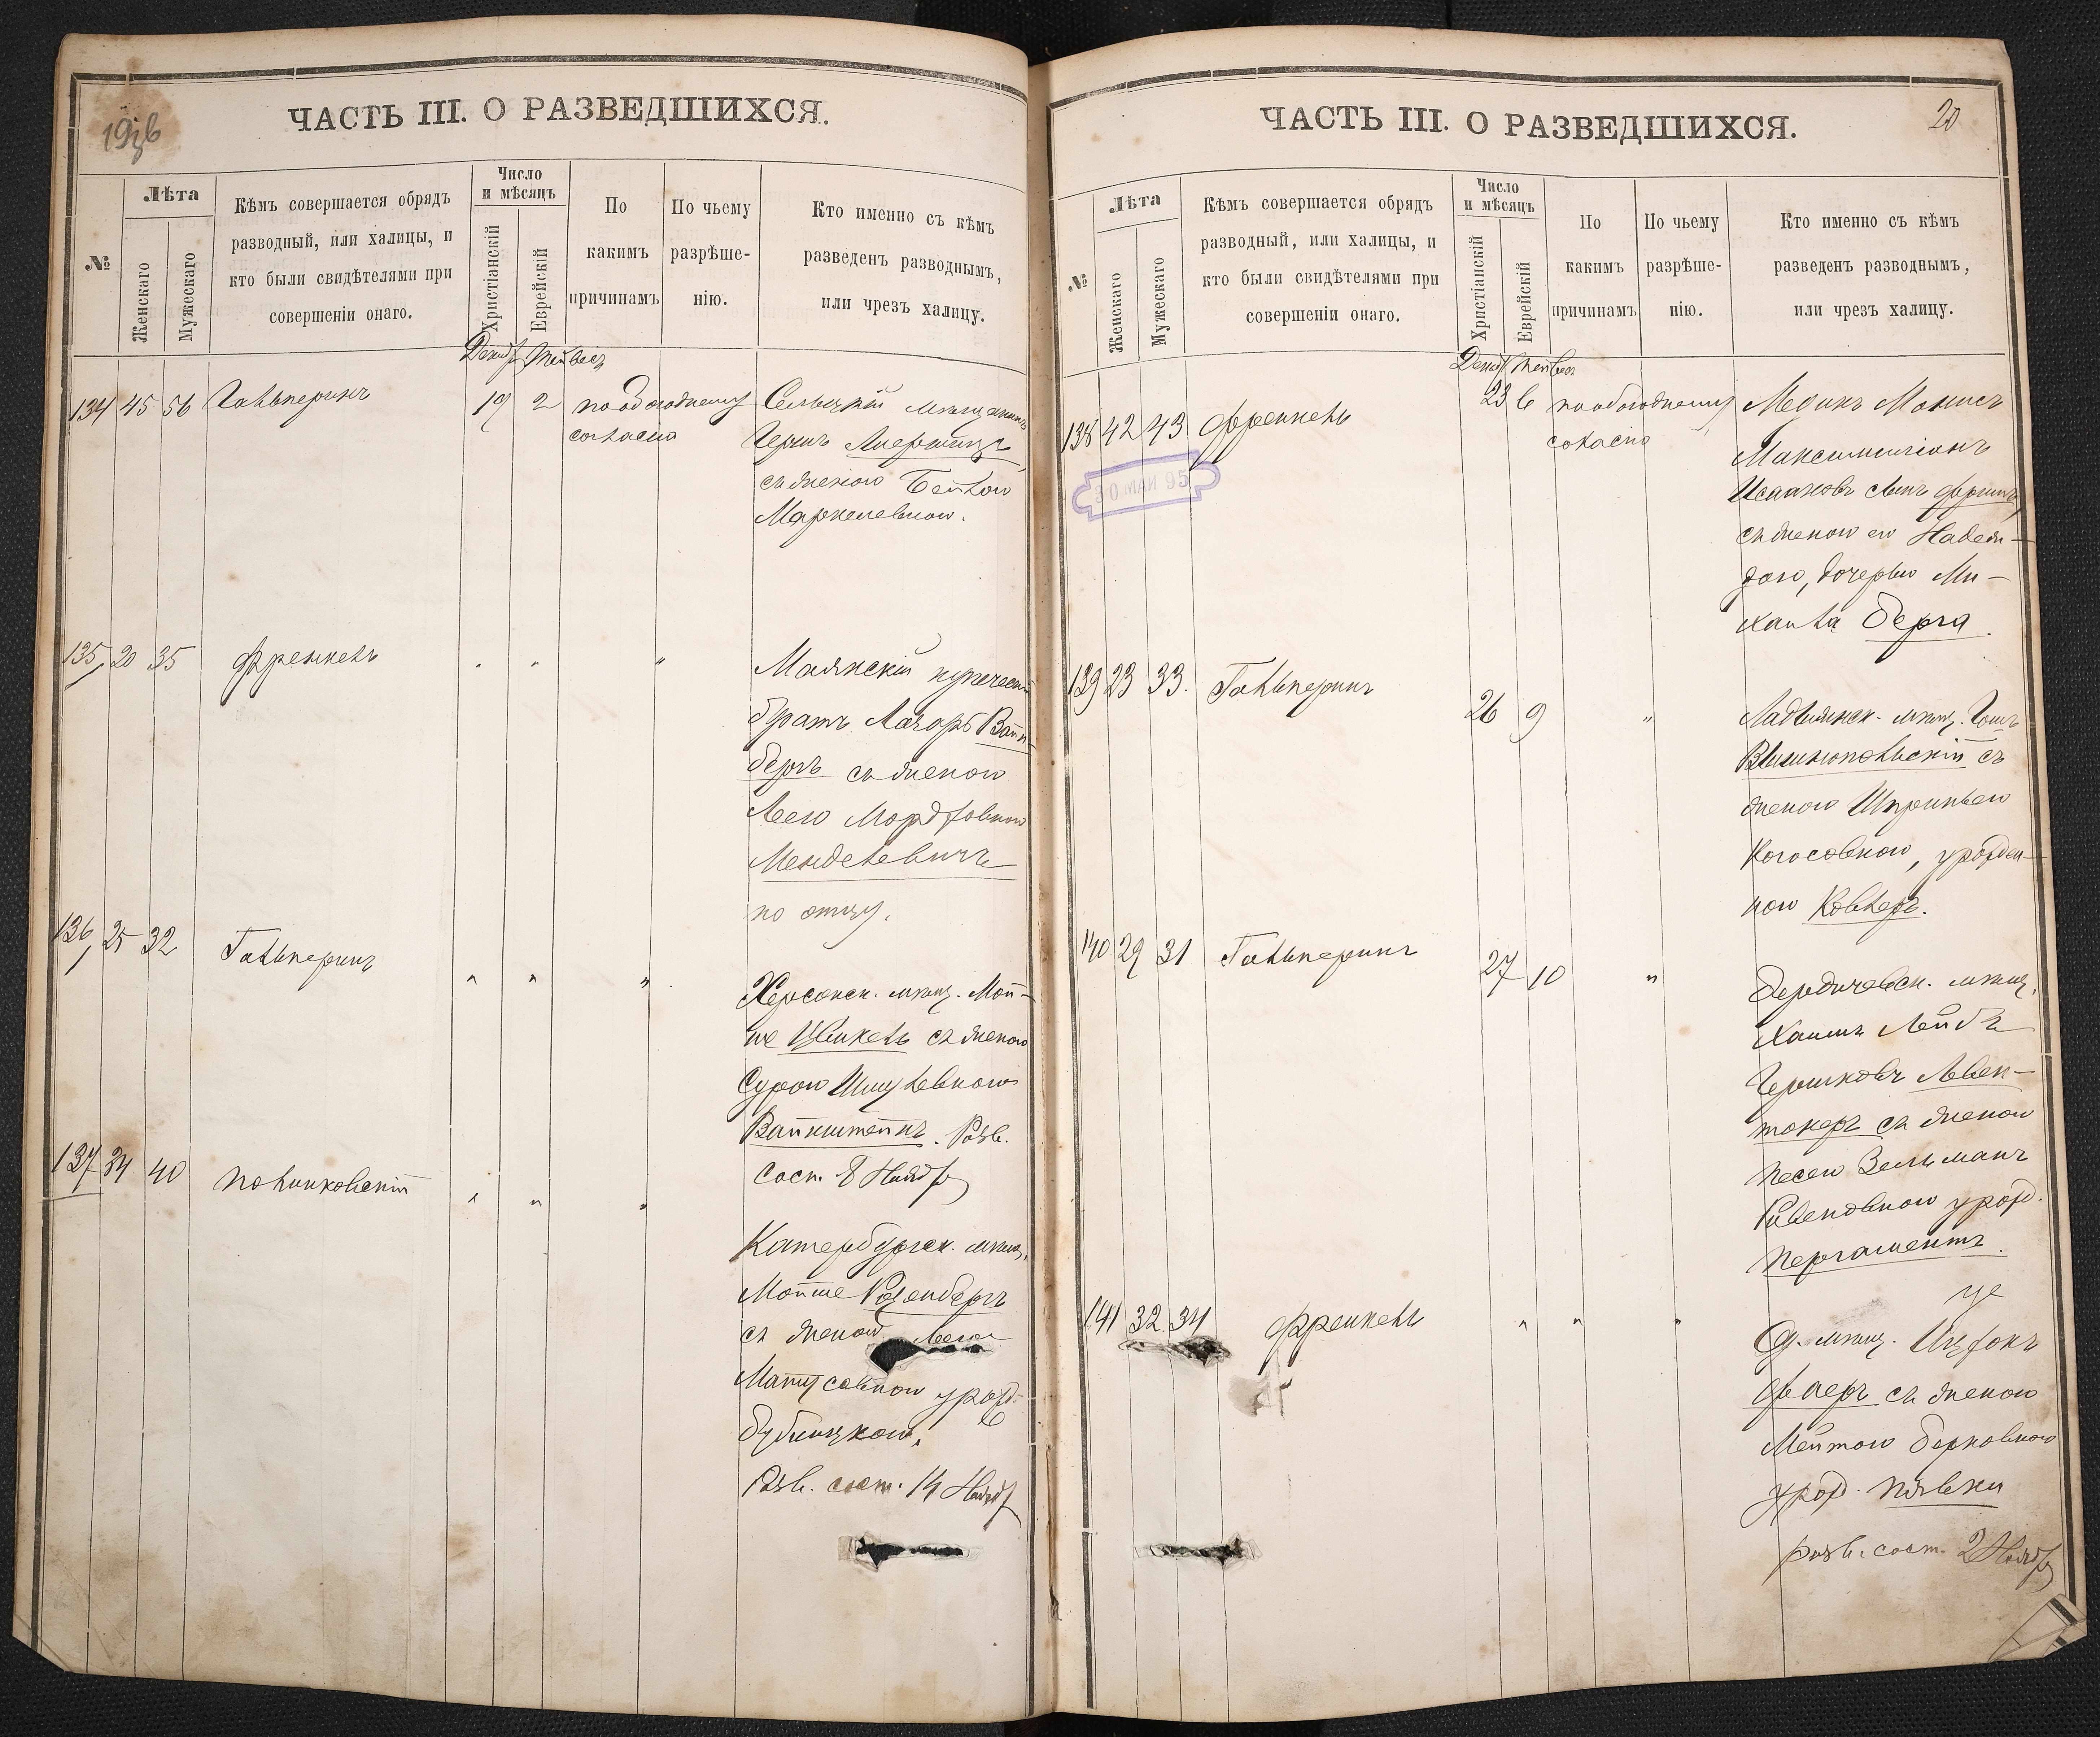 19зв
ЧАСТЬ III. О РАЗВЕДШИХСЯ.
№
Лѣта
Женскаго
Мужескаго
Кѣмъ совершается обрядъ
разводный, или халицы, и
кто были свидѣтелями при
совершеніи онаго.
Число
и мѣсяцъ
Христіанскій
Еврейскій
По
какимъ
причинамъ
По чьему
разрѣше-
нію.
Кто именно съ кѣмъ
разведенъ разводнымъ,
или чрезъ халицу.
Декаб Тейвесъ
134 45 56 Гальперинъ 19 2 по обоюдному
согласію
мѣщанинъ
Гершъ
съ женою Бейлою
135 20 35 Френкель " " "
Маякскій купеческій
братъ Лазарь Вайн-
бергъ съ женою
Леею Мордковною
Менделевичъ
по отцу.
136 25 32 Гальперинъ " " "
Херсонск. мѣщ. Мой-
ше Цвикель съ женою
Сурою
Вайнштейнъ. Разв.
сост. 8 Нояб
137 34 40 Полинковскій " " "
Катербургск. мѣщ.
Мойше Розенбергъ
съ женою Леею
урож.
Разв. сост. 14 Нояб
20
ЧАСТЬ III. О РАЗВЕДШИХСЯ.
№
Лѣта
Женскаго
Мужескаго
Кѣмъ совершается обрядъ
разводный, или халицы, и
кто были свидѣтелями при
совершеніи онаго.
Число
и мѣсяцъ
Христіанскій
Еврейскій
По
какимъ
причинамъ
По чьему
разрѣше-
нію.
Кто именно съ кѣмъ
разведенъ разводнымъ,
или чрезъ халицу.
Декаб Тейвесъ
138 42 43 Френкель 23 6 по обоюдному
согласію
30 МАЙ 95
Медикъ
Максимиліанъ
Исааковъ
съ женою его Надеж-
дою, дочерью Ми-
хаила Берга.
139 23 33. Гальперинъ 26 9 "
Ладыжинск. мѣщ.
Вишнопольскій съ
женою Шпринцею
урожден-
ною Ковлеръ.
140 29 31 Гальперинъ 27 10 "
Бердичевск. мѣщ.
Хаимъ Лейбъ
Гершковъ Левен-
токеръ съ женою
Песею Зельманъ
Рувеновною урож.
Пергаментъ.
141 32 34 Френкель " " "
Од. мѣщ. Ицекъ
Фаеръ съ женою
Мейтою Берковною
урож. Пявки
разв. сост. 2 Нояб